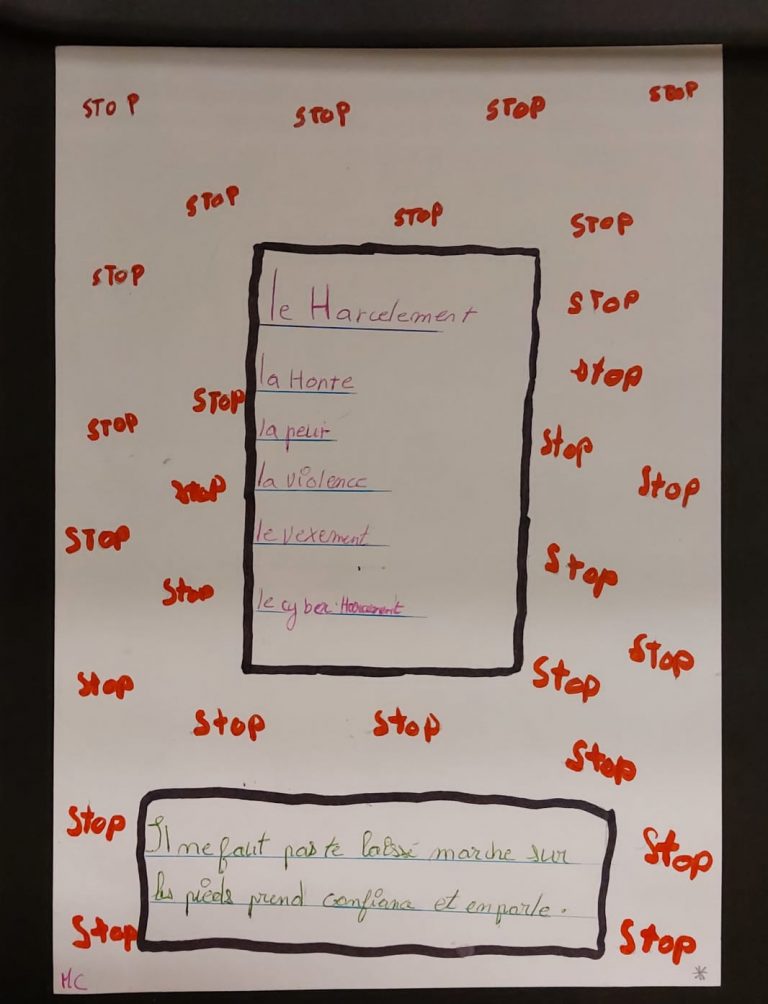 STOP STOP STOP STOP
STOP STOP STOP
STOP STOP
le Harcelement
la Honte
STOP
STOP
STOP
la peur
STOP
la violence
STOP
STOP
le vexement
STOP
STOP
STOP
le cyber. Harcement
STOP
STOP
STOP
STOP
STOP STOP
STOP
STOP
STOP
Il ne faut pas te laissé marche sur
les pieds prend confiance et en parle.
STOP
STOP
MC